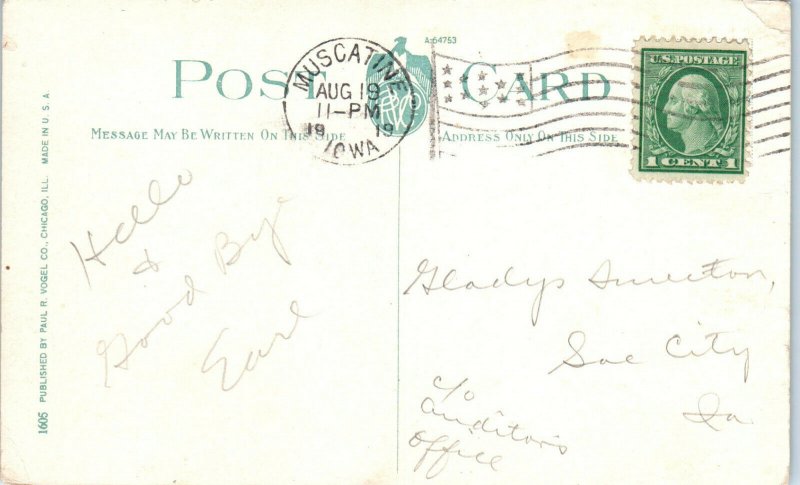 A-64753
POST CARD
MESSAGE MAY BE WRITTEN ON THIS SIDE
ADDRESS ONLY ON THIS SIDE
MUSCATINE
AUG 19
11-PM
19 19
IOWA
U.S. POSTAGE
1 CENT 1
1605 PUBLISHED BY PAUL R. VOGEL CO., CHICAGO, ILL. MADE IN U.S.A.
Hello
&
Good Bye
Earl
Gladys
Sac City
Ia
c/o
Auditor's
Office